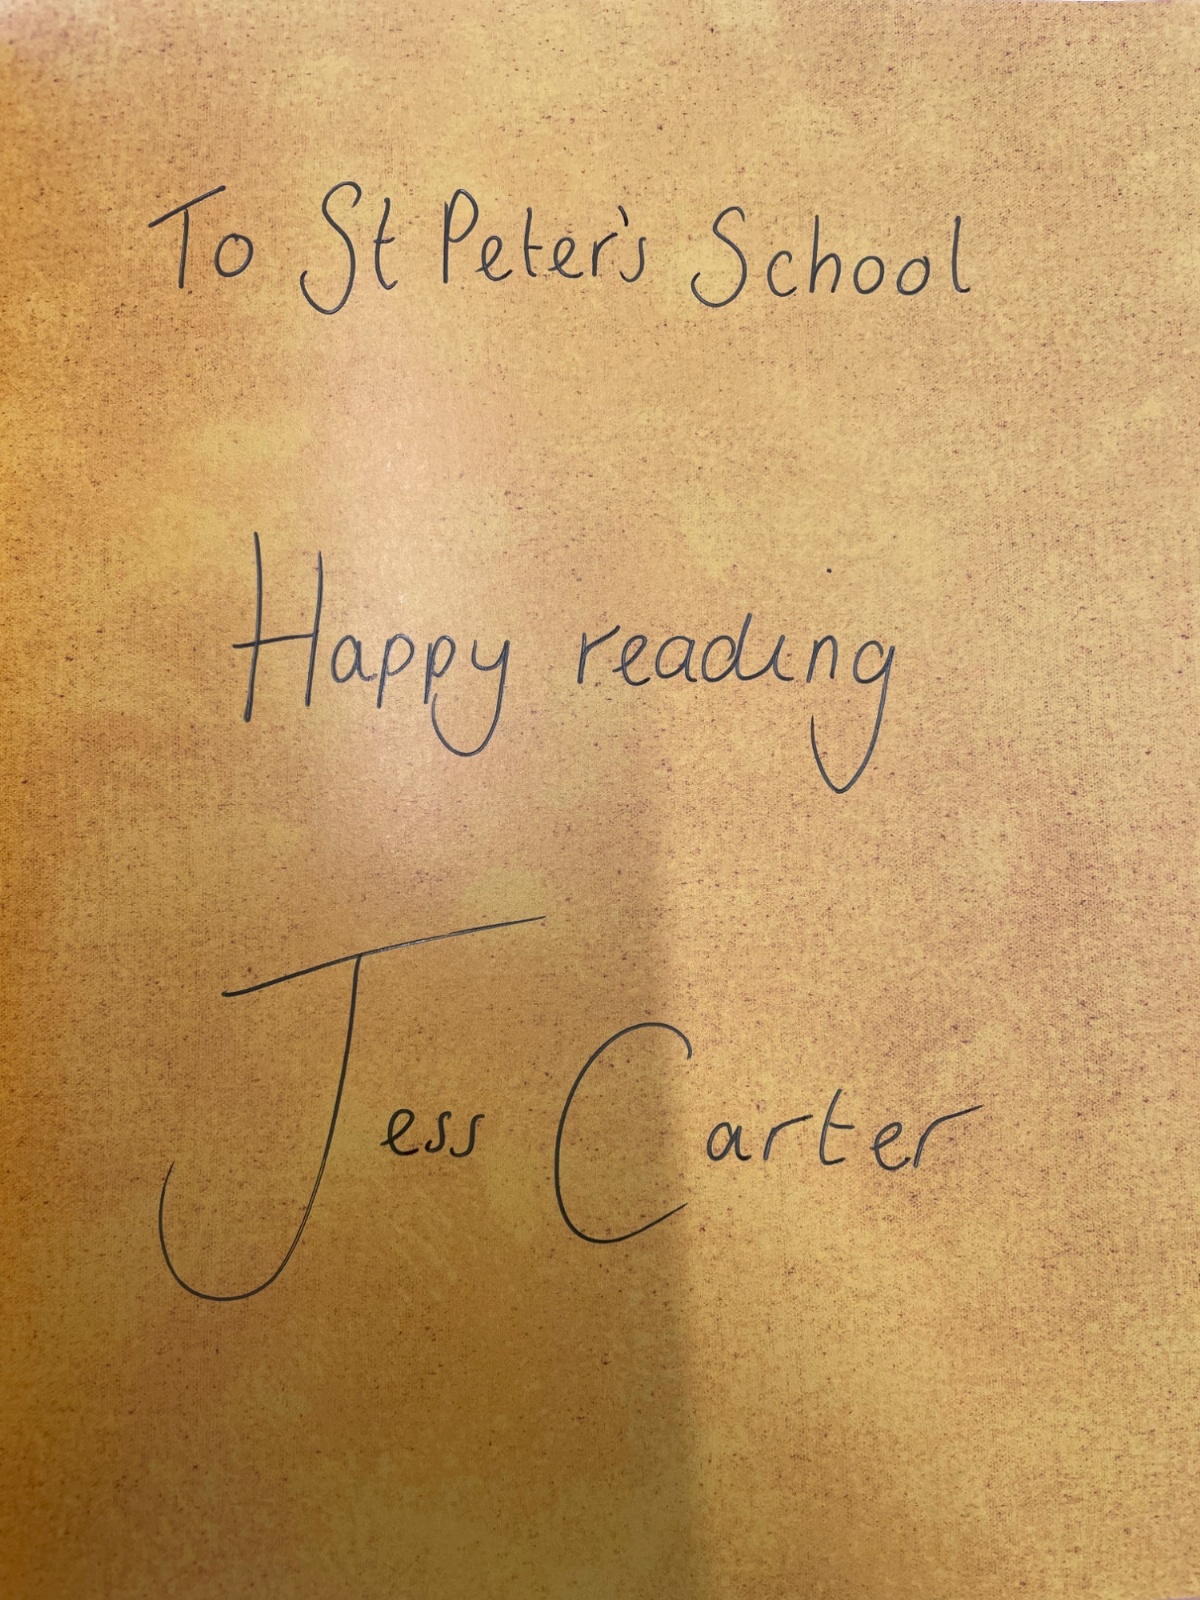 To St Peter's School
Happy reading
Jess Carter